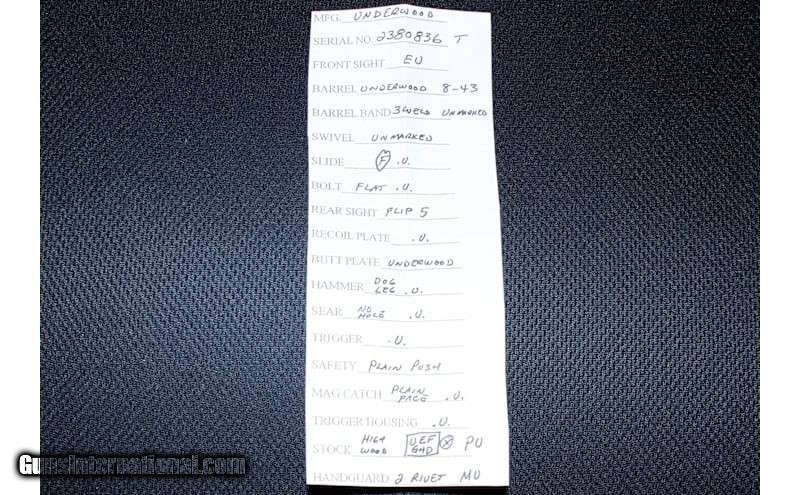 MFG. UNDERWOOD
SERIAL NO. 2380836 T
FRONT SIGHT EU
BARREL UNDERWOOD 8-43
BARREL BAND 3 WELD UNMARKED
SWIVEL UNMARKED
SLIDE F .U.
BOLT FLAT .U.
REAR SIGHT FLIP S
RECOIL PLATE .U.
BUTT PLATE UNDERWOOD
HAMMER DOG LEG .U.
SEAR NO HOLE .U.
TRIGGER .U.
SAFETY PLAIN PUSH
MAG CATCH PLAIN FACE .U.
TRIGGER HOUSING .U.
STOCK HIGH WOOD UEF GHD PU
HANDGUARD 2 RIVET MU
GunsInternational.com